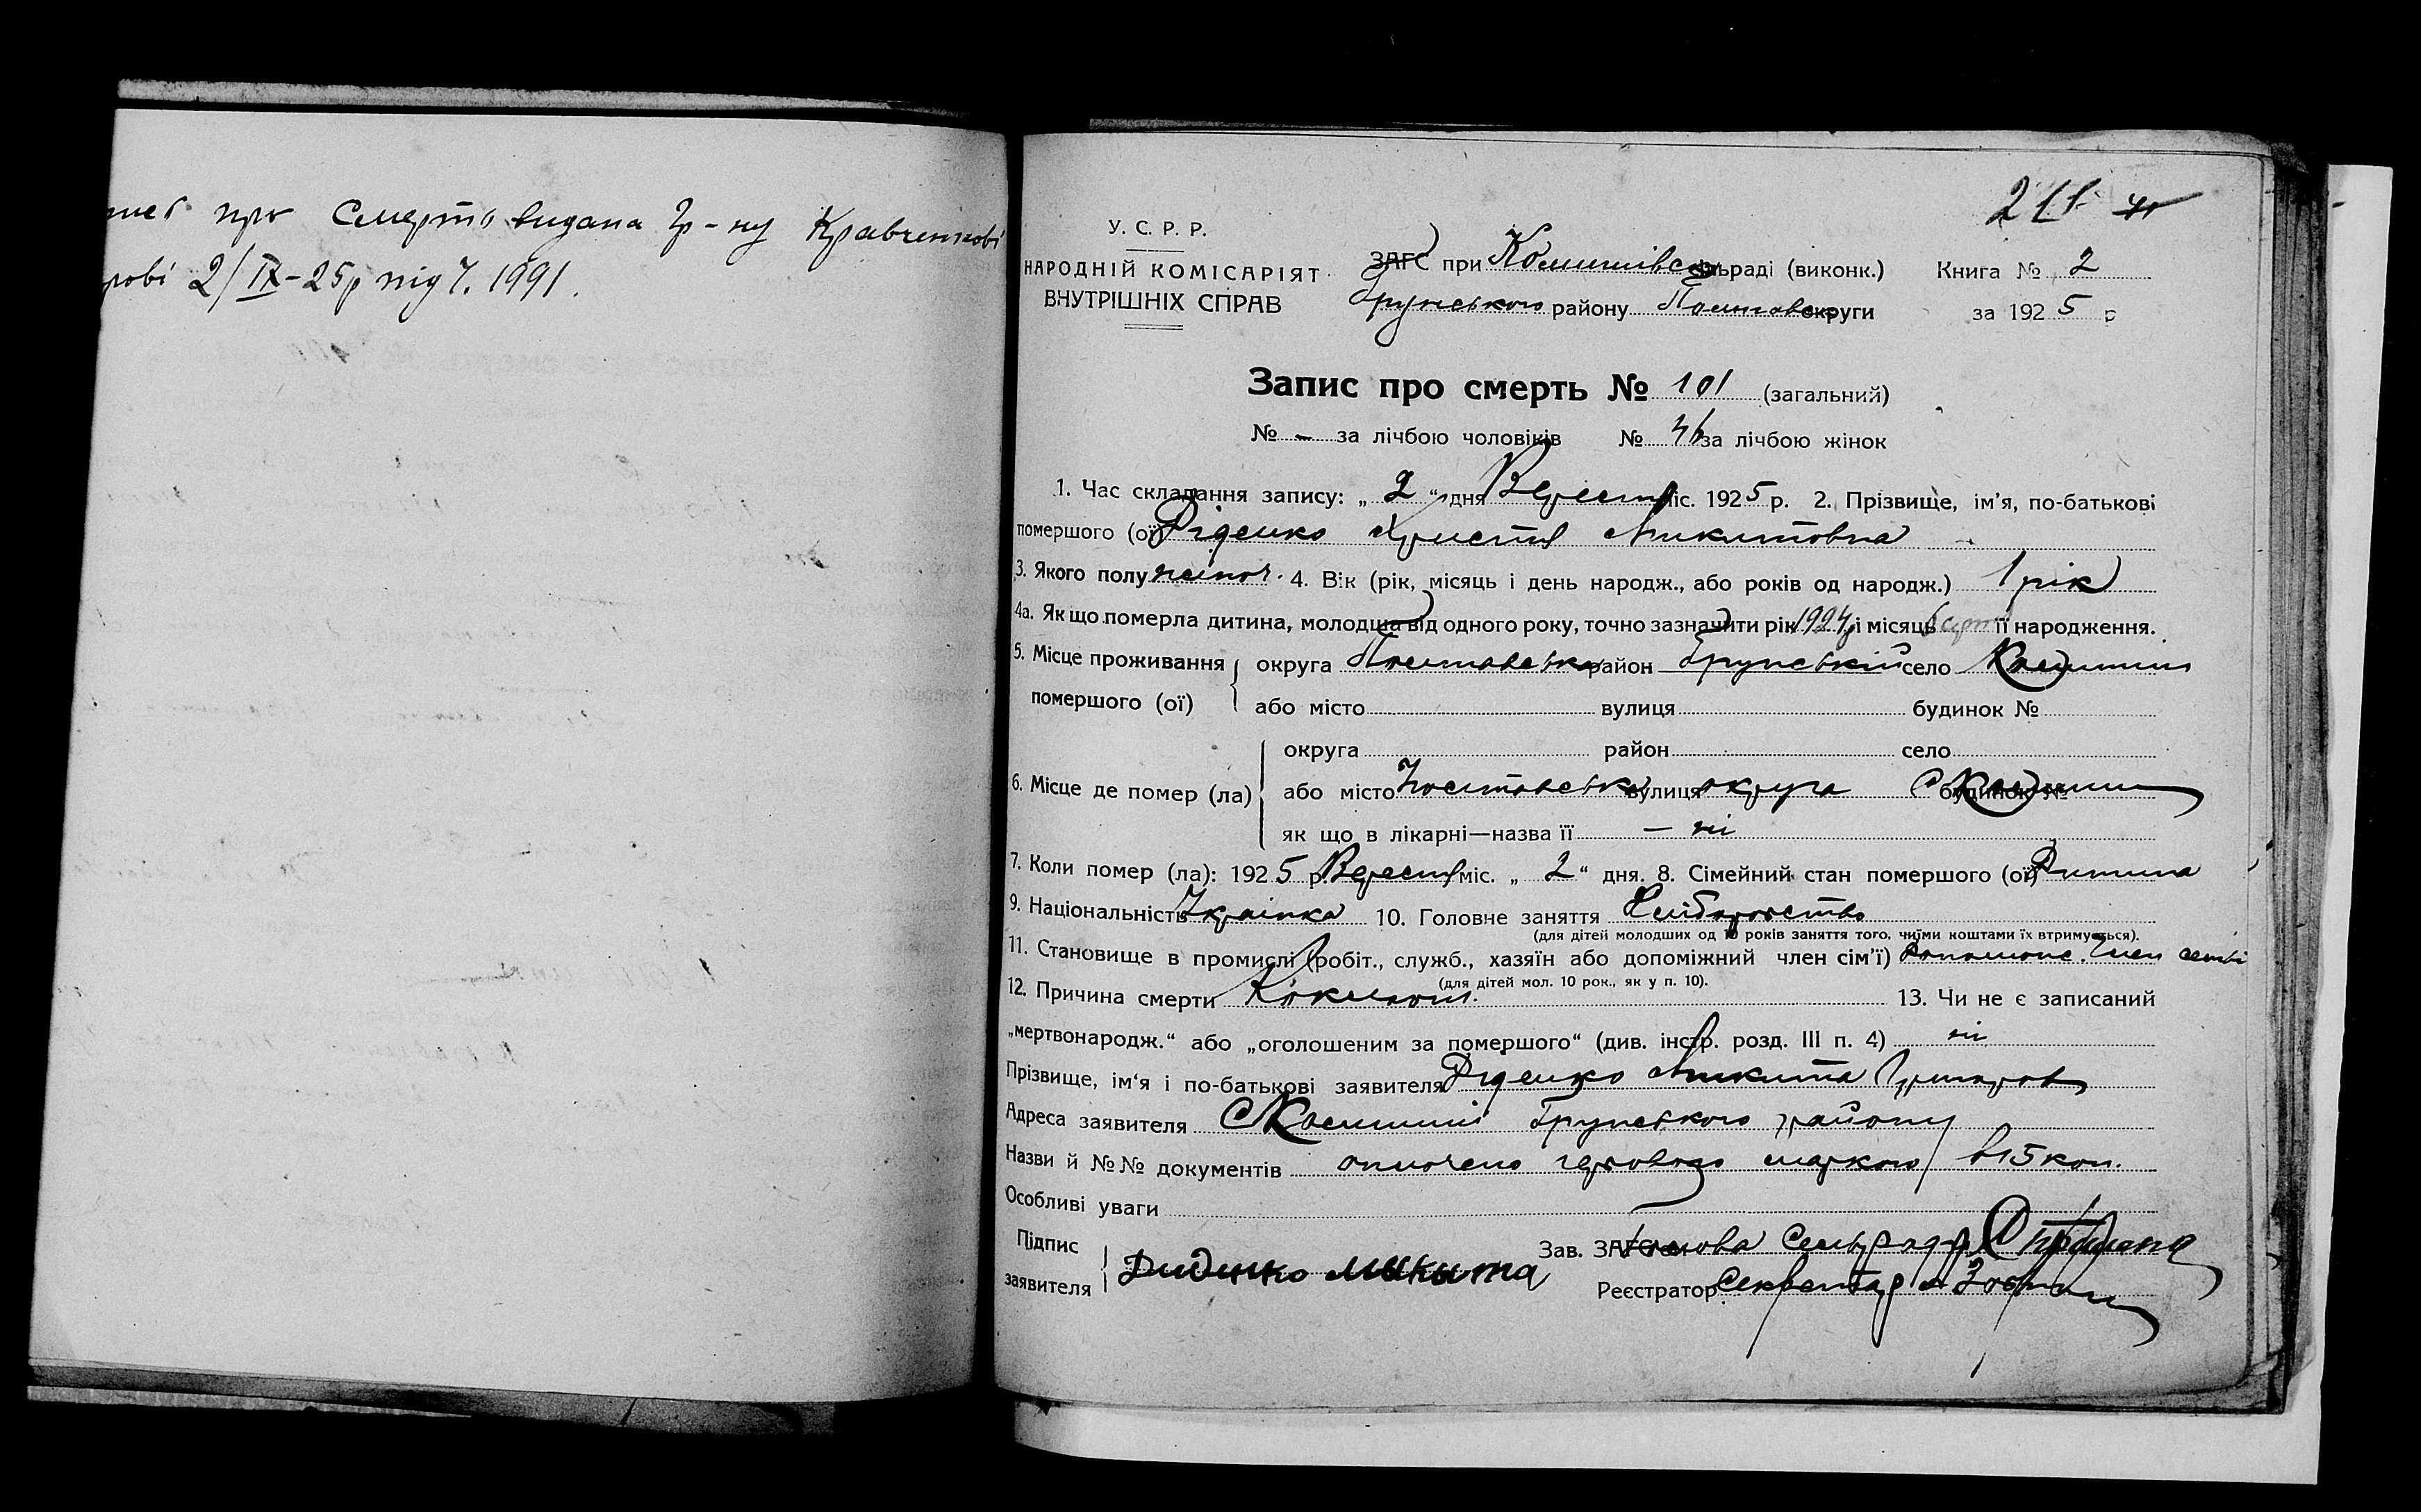 про Смерть видана гр-ну Кравченкові
2/IX-25р під Ч. 1991.
211
У. С. Р. Р.
НАРОДНІЙ КОМІСАРІЯТ
ВНУТРІШНІХ СПРАВ
ЗАГС при раді (виконк.)
Грунського району Полтавськ округи
Книга № 2
за 1925 р
Запис про смерть № 101 (загальний)
№ - за лічбою чоловіків № 46 за лічбою жінок
1. Час складання запису: „2" дня Вересня міс. 1925 р. 2. Прізвище, ім'я, по-батькові
помершого (ої) Діденко Христя Микитовна
3. Якого полу жіноч. 4. Вік (рік, місяць і день народж., або років од народж.) 1 рік
4а. Як що померла дитина, молодша від одного року, точно зазначити рік 1924 і місяць її народження.
5. Місце проживання помершого (ої) округа Полтавська район Грунський село
або місто вулиця будинок №
6. Місце де помер (ла) округа район село
або місто Полтавська вулиця округа с будинок №
як що в лікарні—назва її — ні
7. Коли помер (ла): 1925 р. Вересня міс. „2" дня. 8. Сімейний стан помершого (ої) Дитина
9. Національність Українка 10. Головне заняття Хліборобство
(для дітей молодших од 10 років заняття того, чиїми коштами їх втримується).
11. Становище в промислі (робіт., служб., хазяїн або допоміжний член сім'ї) допоможн. член семьі
(для дітей мол. 10 рок., як у п. 10).
12. Причина смерти Коклюш. 13. Чи не є записаний
„мертвонародж." або „оголошеним за помершого" (див. інстр. розд. III п. 4) ні
Прізвище, ім'я і по-батькові заявителя Діденко Микита Григоров
Адреса заявителя с Грунського району
Назви й №№ документів оплочено гербовою маркою в 15 коп.
Особливі уваги
Підпис заявителя Диденко Микыта
Зав. ЗАГС Голова Сельради
Реєстратор Секретар